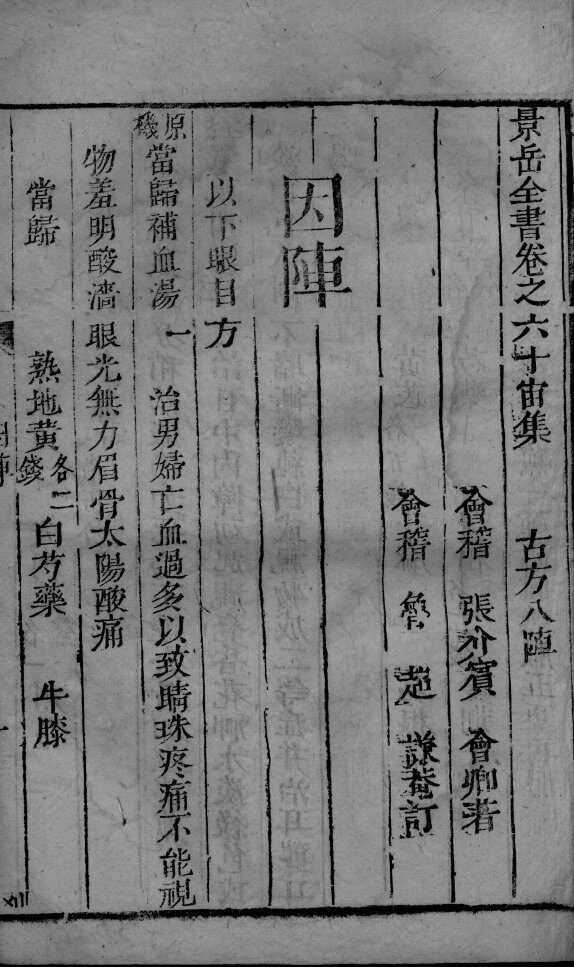 景岳全書卷之六十宙集　古方八陣
會稽　張介賓　會卿著
會稽　魯　超　謙菴訂
因陣
以下眼目方
原機當歸補血湯一　治男婦亡血過多以致睛珠疼痛不能視
物羞明酸濇眼光無力眉骨太陽酸痛
當歸　熟地黃各二錢　白芍藥　牛膝